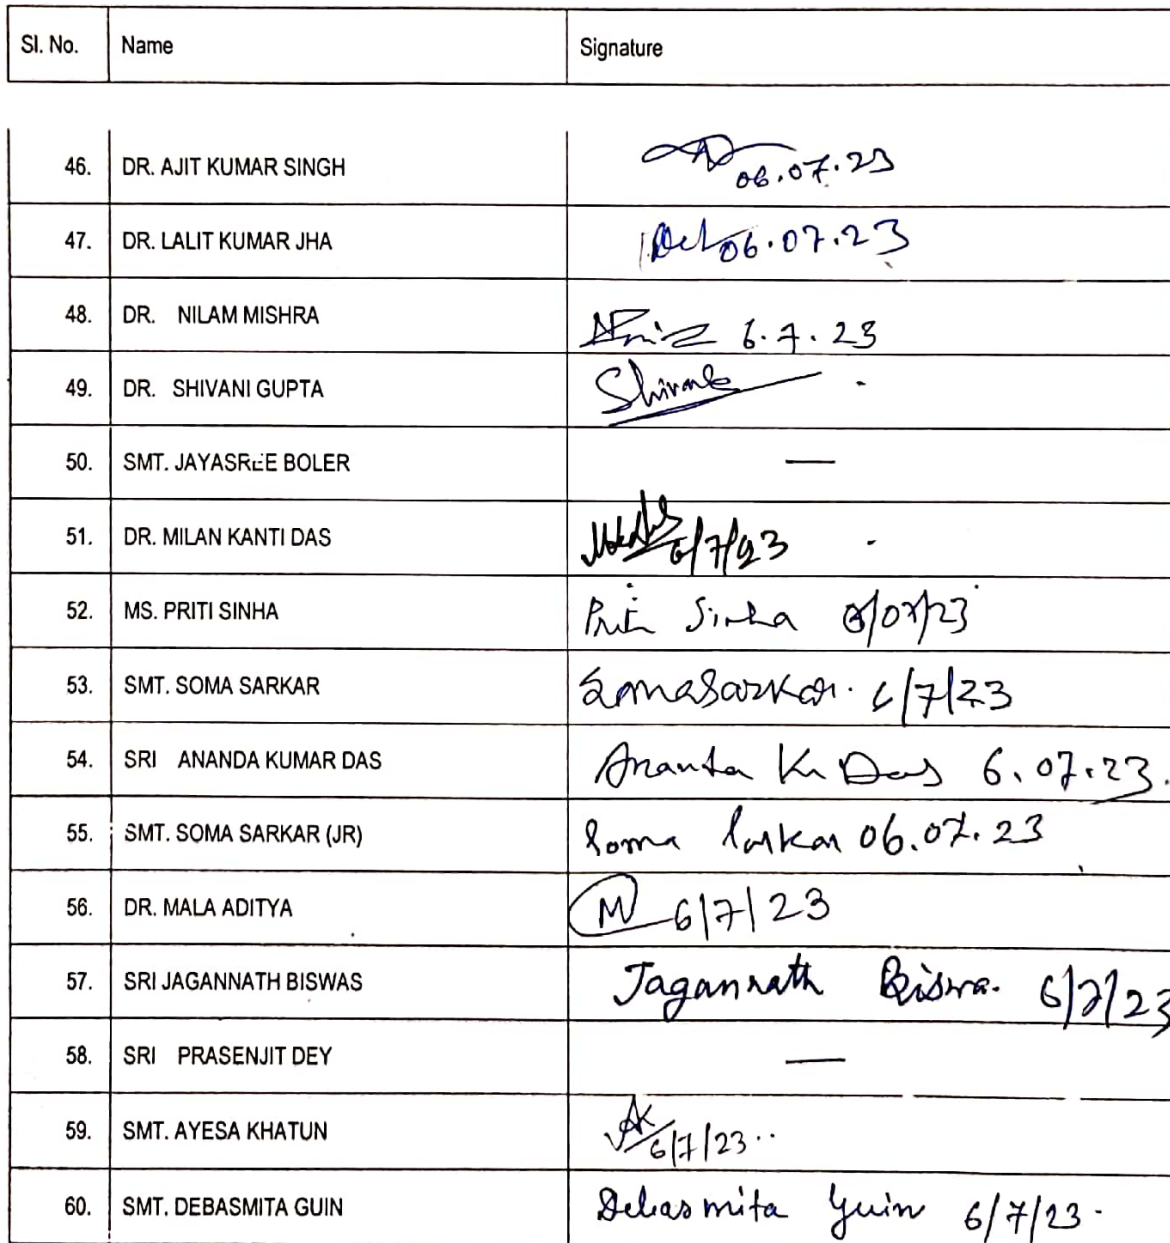 Sl. No. Name Signature
46. DR. AJIT KUMAR SINGH 06.07.23
47. DR. LALIT KUMAR JHA 06.07.23
48. DR. NILAM MISHRA 6.7.23
49. DR. SHIVANI GUPTA Shivani
50. SMT. JAYASREE BOLER —
51. DR. MILAN KANTI DAS 6/7/23
52. MS. PRITI SINHA Priti Sinha 6/07/23
53. SMT. SOMA SARKAR Soma Sarkar. 6/7/23
54. SRI ANANDA KUMAR DAS Ananta Kr Das 6.07.23.
55. SMT. SOMA SARKAR (JR) Soma Sarkar 06.07.23
56. DR. MALA ADITYA M 6/7/23
57. SRI JAGANNATH BISWAS Jagannath Biswa. 6/7/23
58. SRI PRASENJIT DEY —
59. SMT. AYESA KHATUN AK 6/7/23..
60. SMT. DEBASMITA GUIN Debasmita Guin 6/7/23.